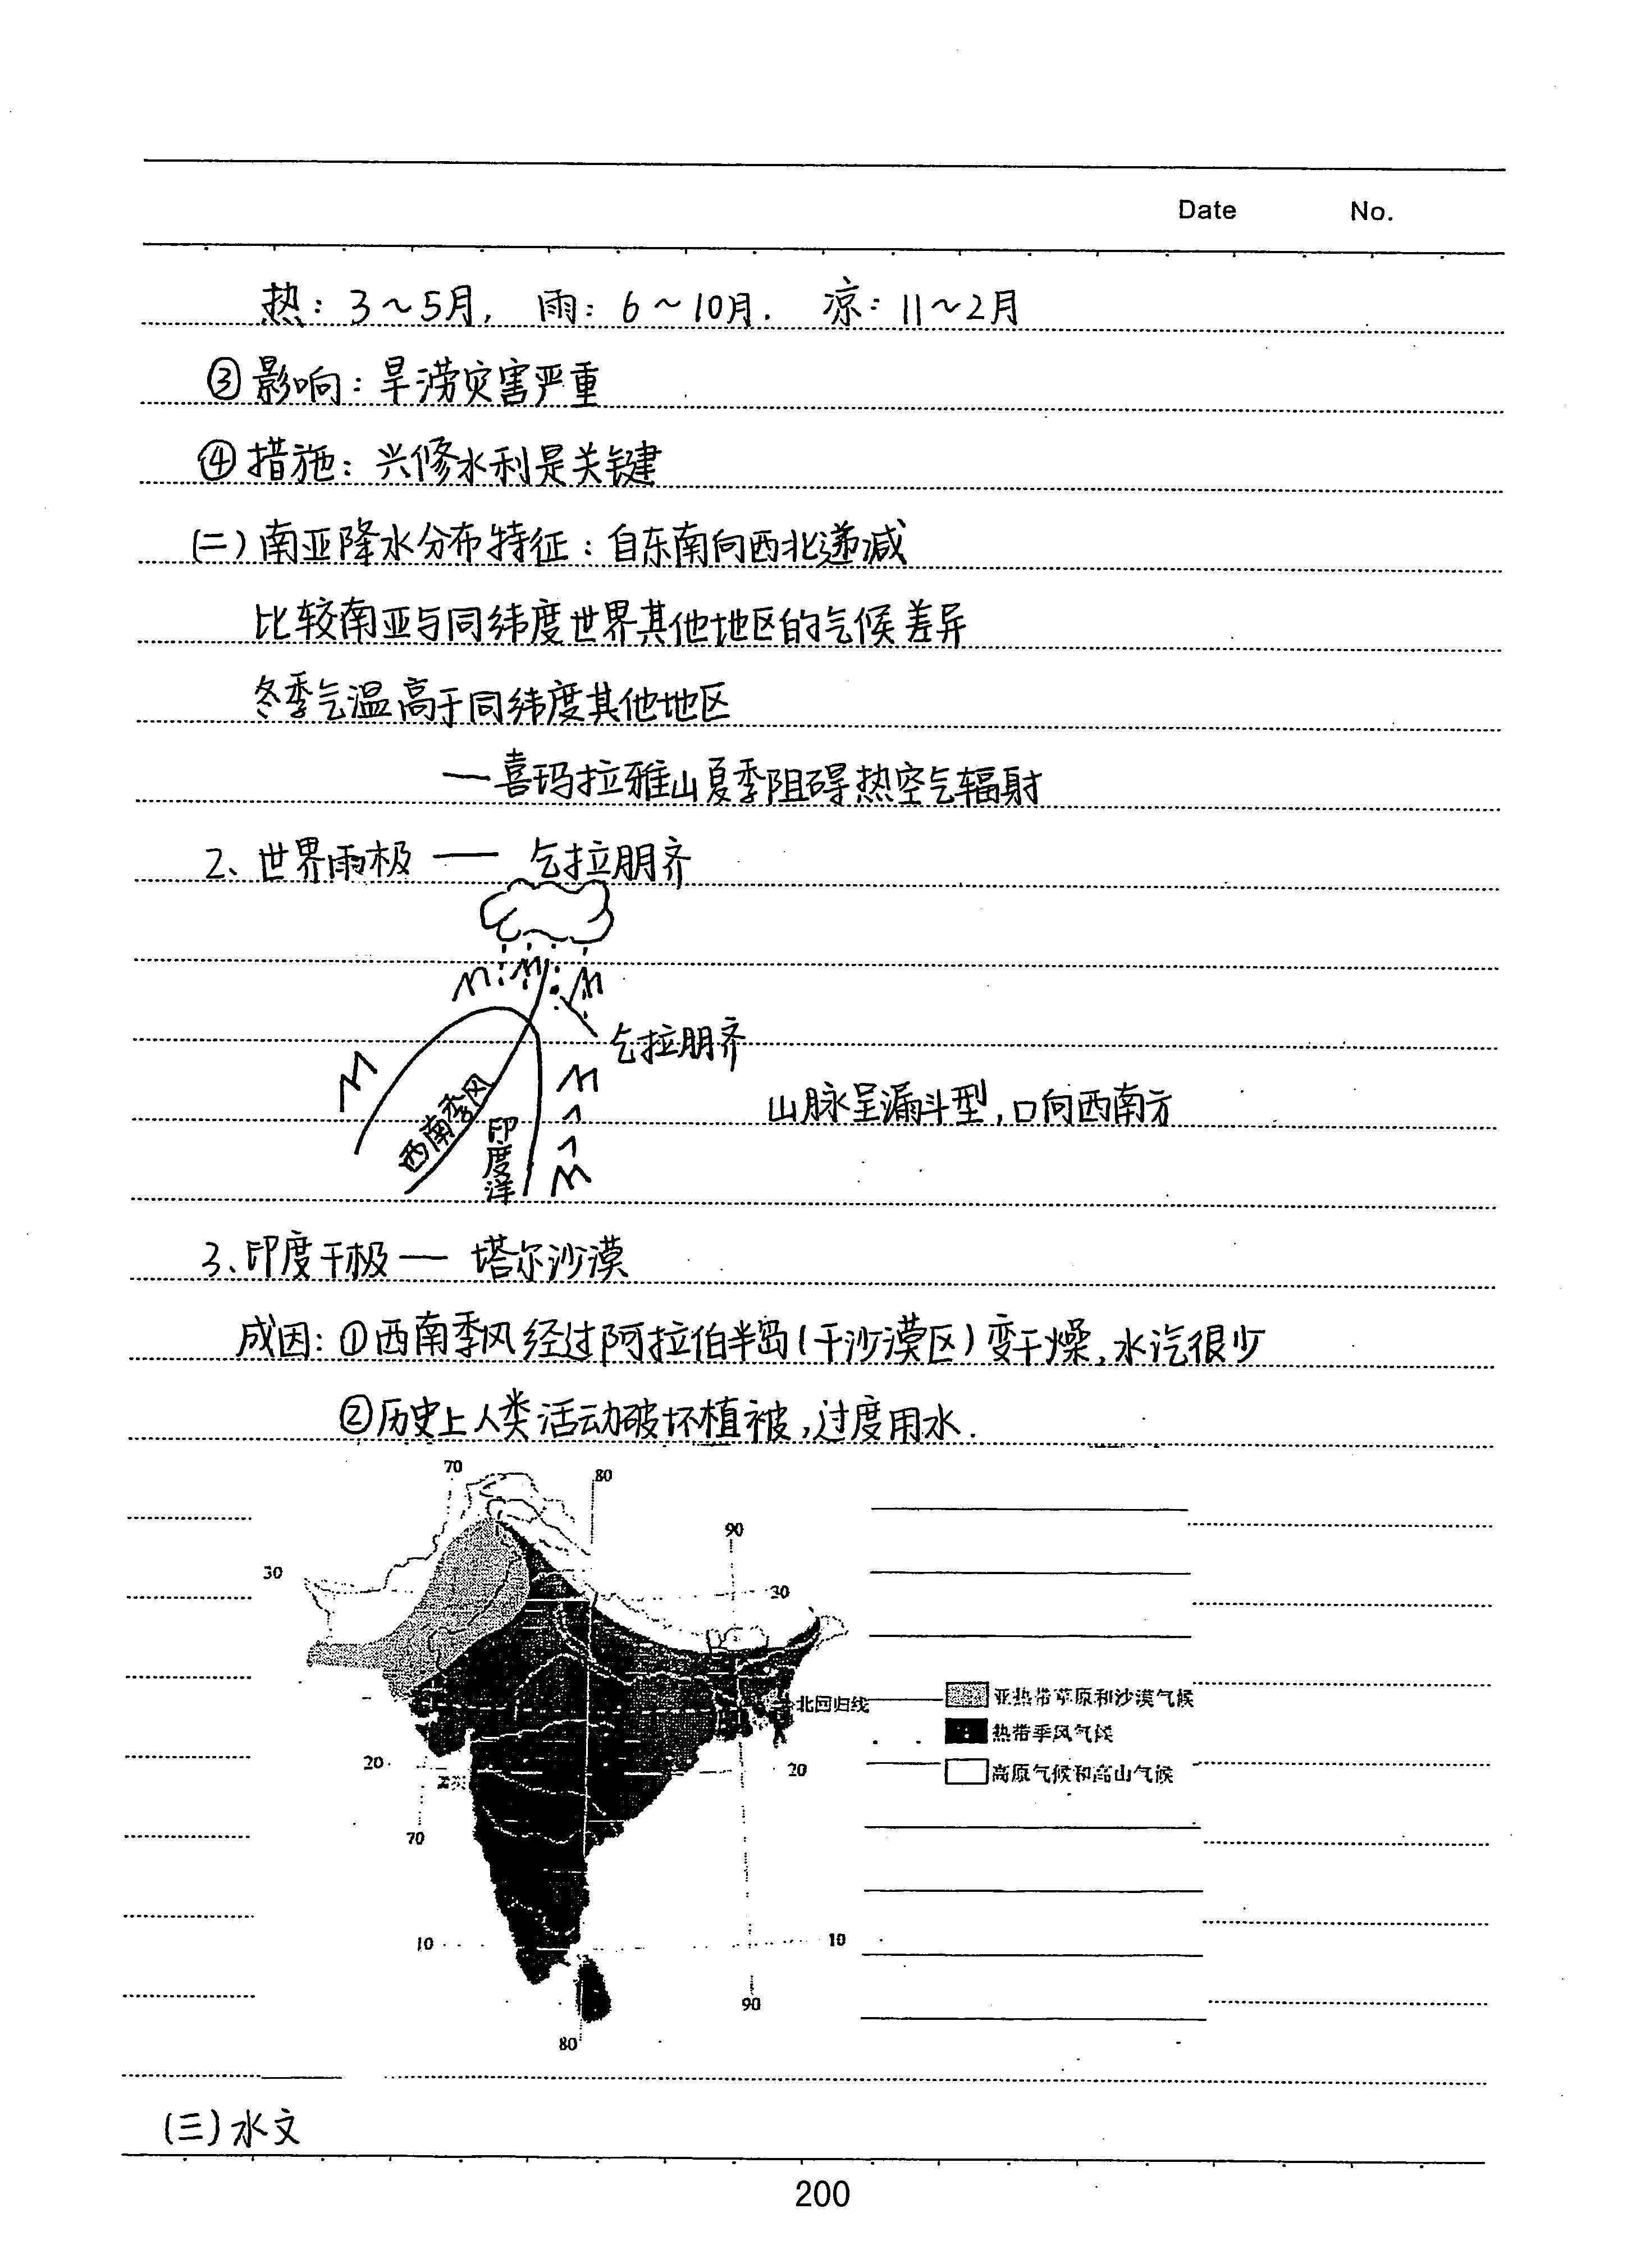 Date No.
热：3～5月， 雨：6～10月． 凉：11～2月
③影响：旱涝灾害严重
④措施：兴修水利是关键
(二)南亚降水分布特征：自东南向西北递减
比较南亚与同纬度世界其他地区的气候差异
冬季气温高于同纬度其他地区
—喜玛拉雅山夏季阻碍热空气辐射
2、世界雨极 — 乞拉朋齐
乞拉朋齐
西南季风
印度洋
山脉呈漏斗型，口向西南方
3、印度干极— 塔尔沙漠
成因：①西南季风经过阿拉伯半岛(干沙漠区)变干燥，水汽很少
②历史上人类活动破坏植被，过度用水．
70
80
90
30
30
北回归线
亚热带草原和沙漠气候
热带季风气候
20
20
高原气候和高山气候
70
10
10
90
80
(三)水文
200